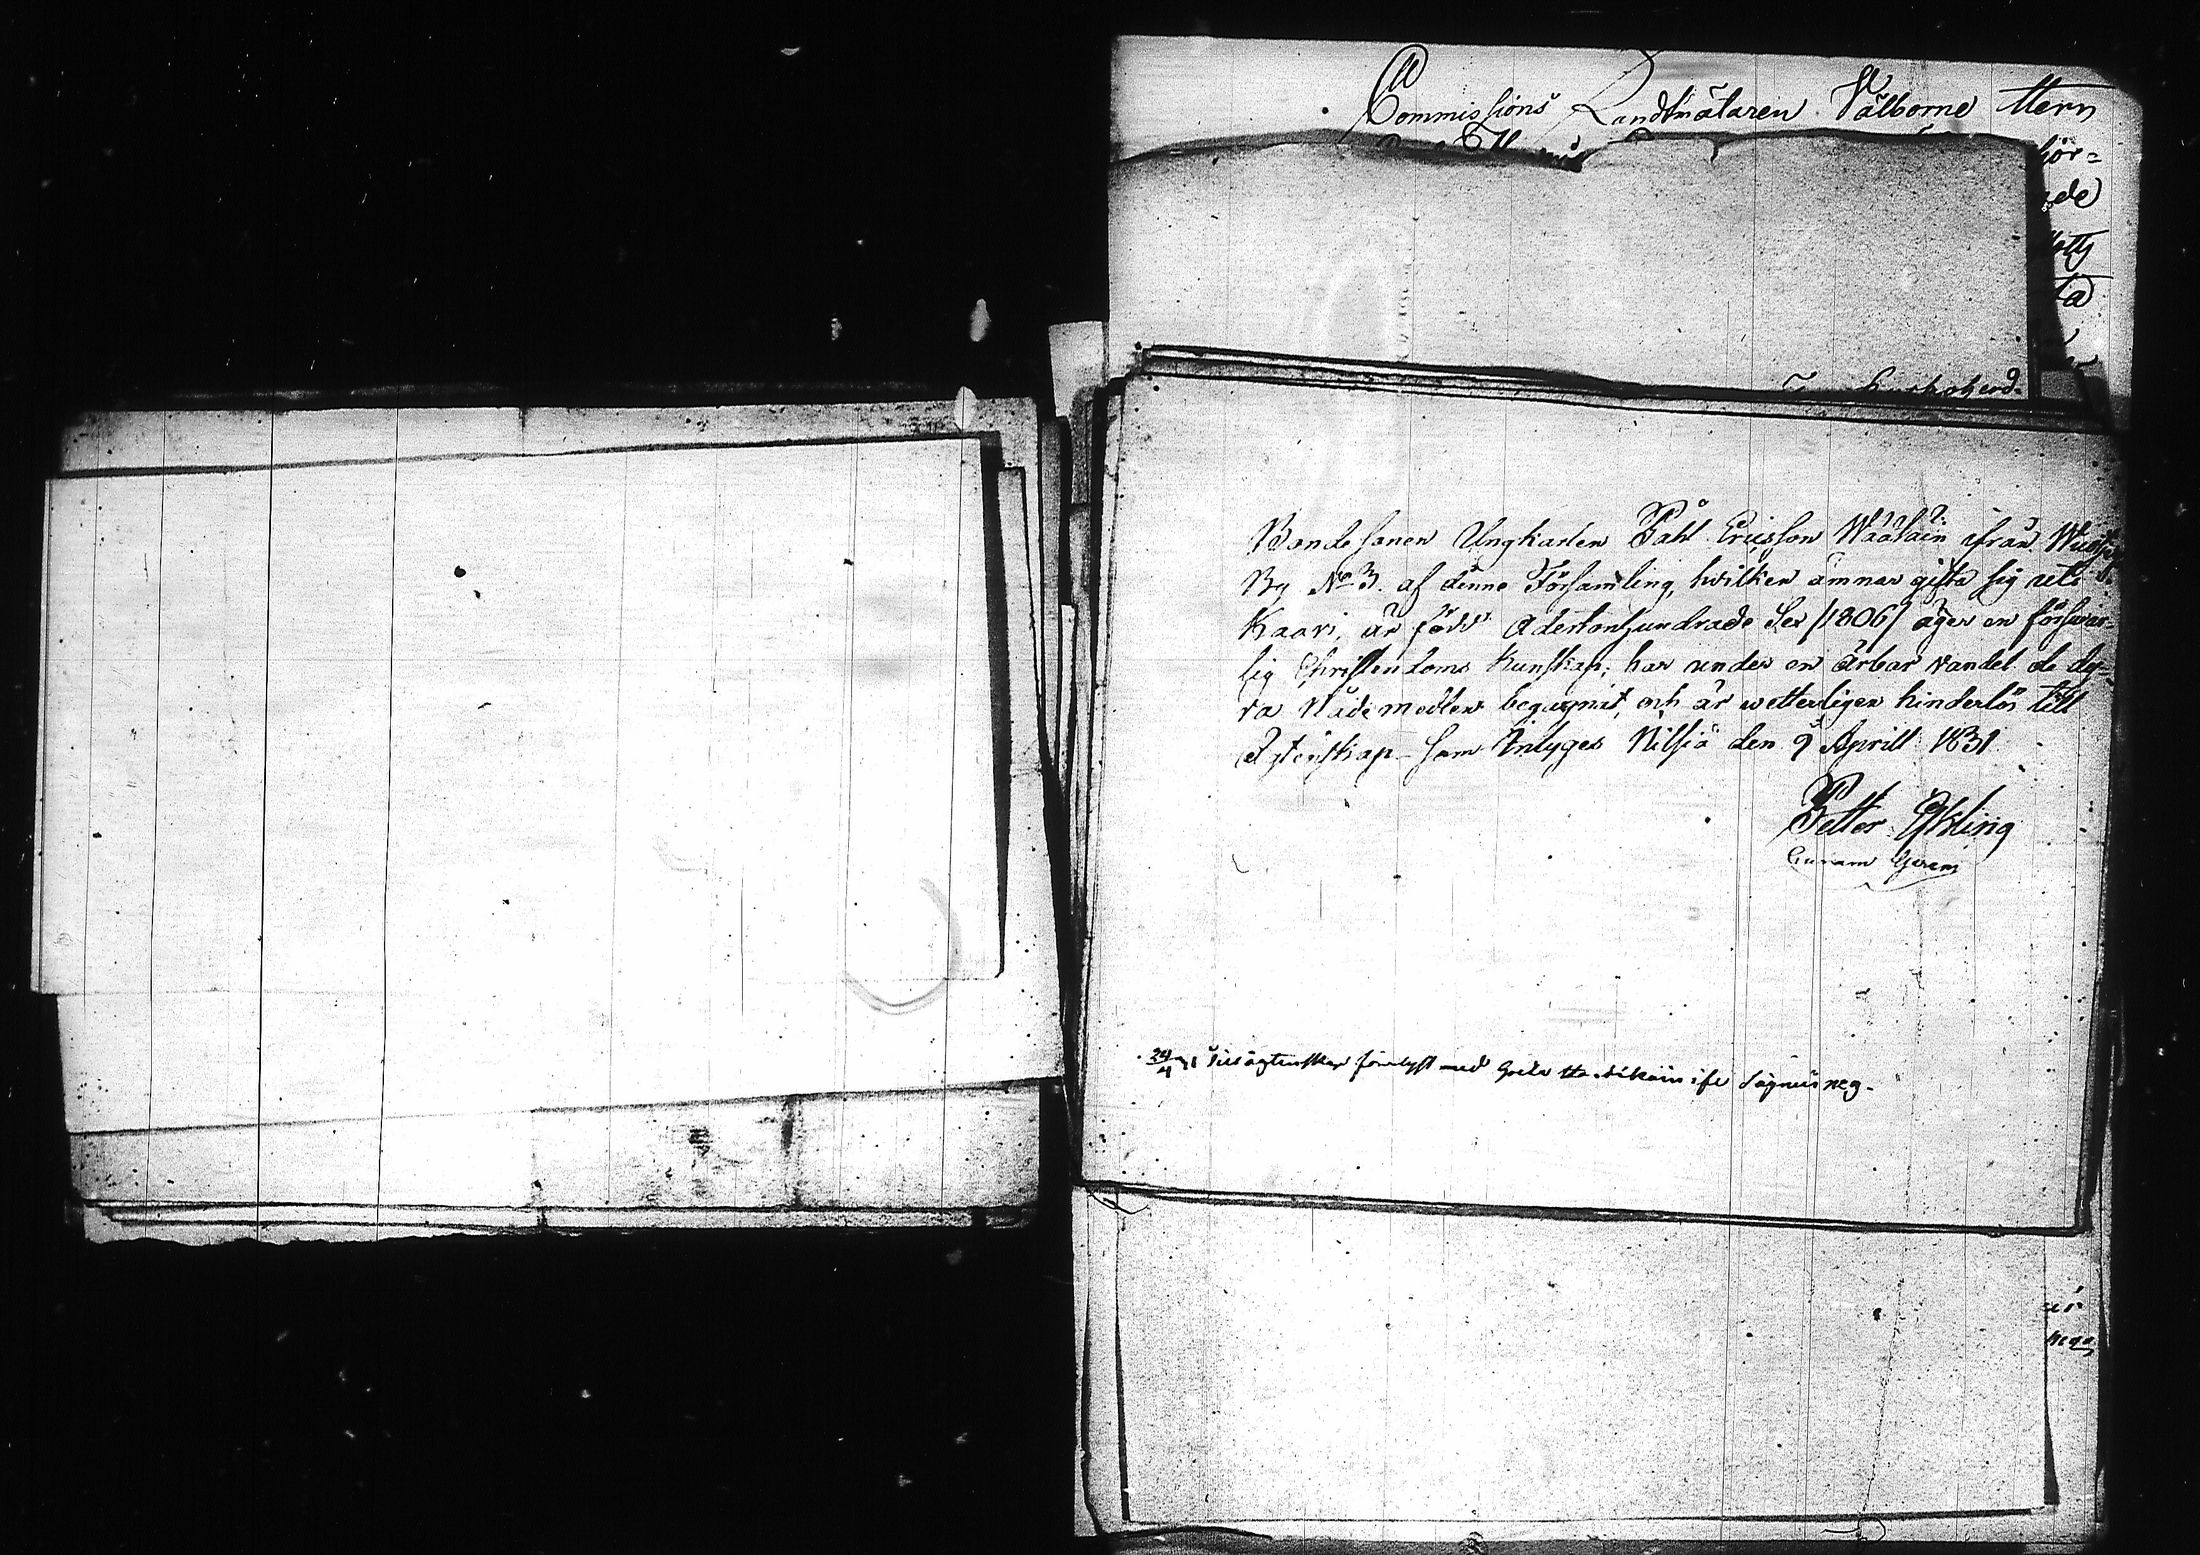 Commissions Landtmätaren Välborne Herr
hör=
ade
ta
Bondesonen Ungkarlen Påhl Ericsson Wäätäin ifrån
By No 3. af denne Församling, hvilken ämnar gifta sig uti
Kaavi, är född Adertonhundrade Sex /1806/ äger en försvar=
lig Christendoms Kunskap; har under en ärbar vandel de dy=
ra Nådemedlen begagnat, och är wetterligen hinderlös till
Ägtenskap. Som intygas Nilsiä den 9 Aprill 1831
Petter Eskling
24/4 31 Till ägtenskap förelyst med Greta ifr neg.
är